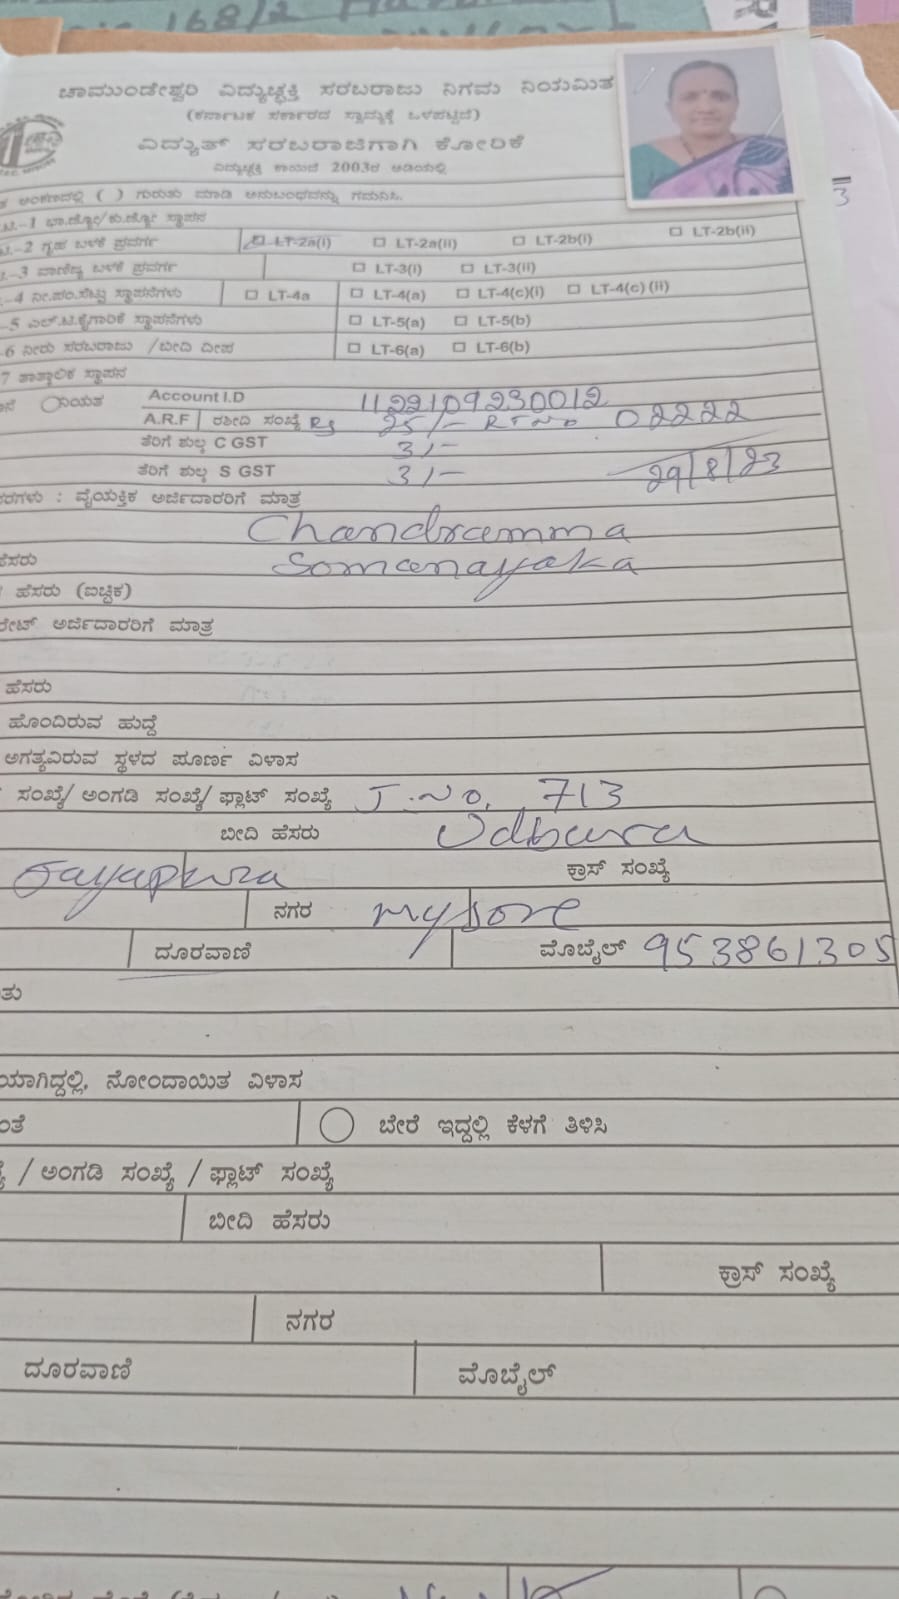 168/2
ಚಾಮುಂಡೇಶ್ವರಿ ವಿದ್ಯುಚ್ಛಕ್ತಿ ಸರಬರಾಜು ನಿಗಮ ನಿಯಮಿತ
(ಕರ್ನಾಟಕ ಸರ್ಕಾರದ ಸ್ವಾಮ್ಯಕ್ಕೆ ಒಳಪಟ್ಟಿದೆ)
ವಿದ್ಯುತ್ ಸರಬರಾಜಿಗಾಗಿ ಕೋರಿಕೆ
ವಿದ್ಯುಚ್ಛಕ್ತಿ ಕಾಯಿದೆ 2003ರ ಅಡಿಯಲ್ಲಿ
ಅಂಕಣದಲ್ಲಿ ( ) ಗುರುತು ಮಾಡಿ ಅನುಬಂಧವನ್ನು ಗಮನಿಸಿ.
3
-1 ಭಾ.ಜ್ಯೋ/ಕು.ಜ್ಯೋ ಸ್ಥಾಪನ
-2 ಗೃಹ ಬಳಕೆ ಪ್ರವರ್ಗ LT-2a(i) LT-2a(ii) LT-2b(i) LT-2b(ii)
-3 ವಾಣಿಜ್ಯ ಬಳಕೆ ಪ್ರವರ್ಗ LT-3(i) LT-3(ii)
-4 ನೀ.ಪಂ.ಸೆಟ್ಟು ಸ್ಥಾಪನೆಗಳು LT-4a LT-4(a) LT-4(c)(i) LT-4(c)(ii)
-5 ಎಲ್.ಟಿ.ಕೈಗಾರಿಕೆ ಸ್ಥಾಪನೆಗಳು LT-5(a) LT-5(b)
-6 ನೀರು ಸರಬರಾಜು /ಬೀದಿ ದೀಪ LT-6(a) LT-6(b)
7 ತಾತ್ಕಾಲಿಕ ಸ್ಥಾಪನ
ನಿಯತ Account I.D 1122109230012
A.R.F ರಶೀದಿ ಸಂಖ್ಯೆ Rs 25/- RT No 02222
ತೆರಿಗೆ ಶುಲ್ಕ C GST 3/-
ತೆರಿಗೆ ಶುಲ್ಕ S GST 3/- 29/8/23
: ವೈಯಕ್ತಿಕ ಅರ್ಜಿದಾರರಿಗೆ ಮಾತ್ರ
Chandramma
ಹೆಸರು Somanayaka
ಹೆಸರು (ಐಚ್ಛಿಕ)
ಅರ್ಜಿದಾರರಿಗೆ ಮಾತ್ರ
ಹೆಸರು
ಹೊಂದಿರುವ ಹುದ್ದೆ
ಅಗತ್ಯವಿರುವ ಸ್ಥಳದ ಪೂರ್ಣ ವಿಳಾಸ
ಸಂಖ್ಯೆ/ ಅಂಗಡಿ ಸಂಖ್ಯೆ/ ಫ್ಲಾಟ್ ಸಂಖ್ಯೆ J.No. 713
ಬೀದಿ ಹೆಸರು Udbura
Jayapura ಕ್ರಾಸ್ ಸಂಖ್ಯೆ
ನಗರ mysore
ದೂರವಾಣಿ ಮೊಬೈಲ್ 953861305
ಯಾಗಿದ್ದಲ್ಲಿ, ನೋಂದಾಯಿತ ವಿಳಾಸ
ಬೇರೆ ಇದ್ದಲ್ಲಿ ಕೆಳಗೆ ತಿಳಿಸಿ
/ ಅಂಗಡಿ ಸಂಖ್ಯೆ / ಫ್ಲಾಟ್ ಸಂಖ್ಯೆ
ಬೀದಿ ಹೆಸರು
ಕ್ರಾಸ್ ಸಂಖ್ಯೆ
ನಗರ
ದೂರವಾಣಿ ಮೊಬೈಲ್